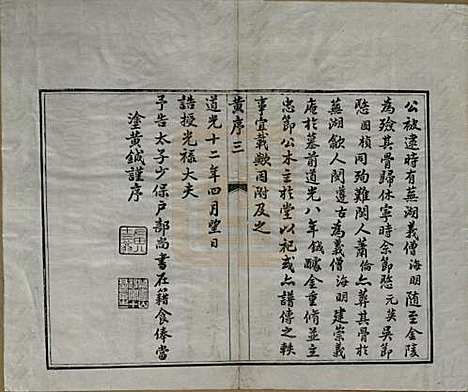 公被逮時有蕪湖義僧海明隨至金陵
為殮其骨歸休寧時余節愍元英吳節
愍因楨同殉難閩人蕭倫亦葬其骨於
蕪湖歙人閔遵古為義僧海明建崇義
庵於墓前道光八年鉞醵金重脩並立
忠節公木主於堂以祀或亦譜傳之軼
事宜載歟因附及之
黄序三
道光十二年四月望日
誥授光祿大夫
予告太子少保戶部尚書在籍食俸當
塗黄鉞謹序